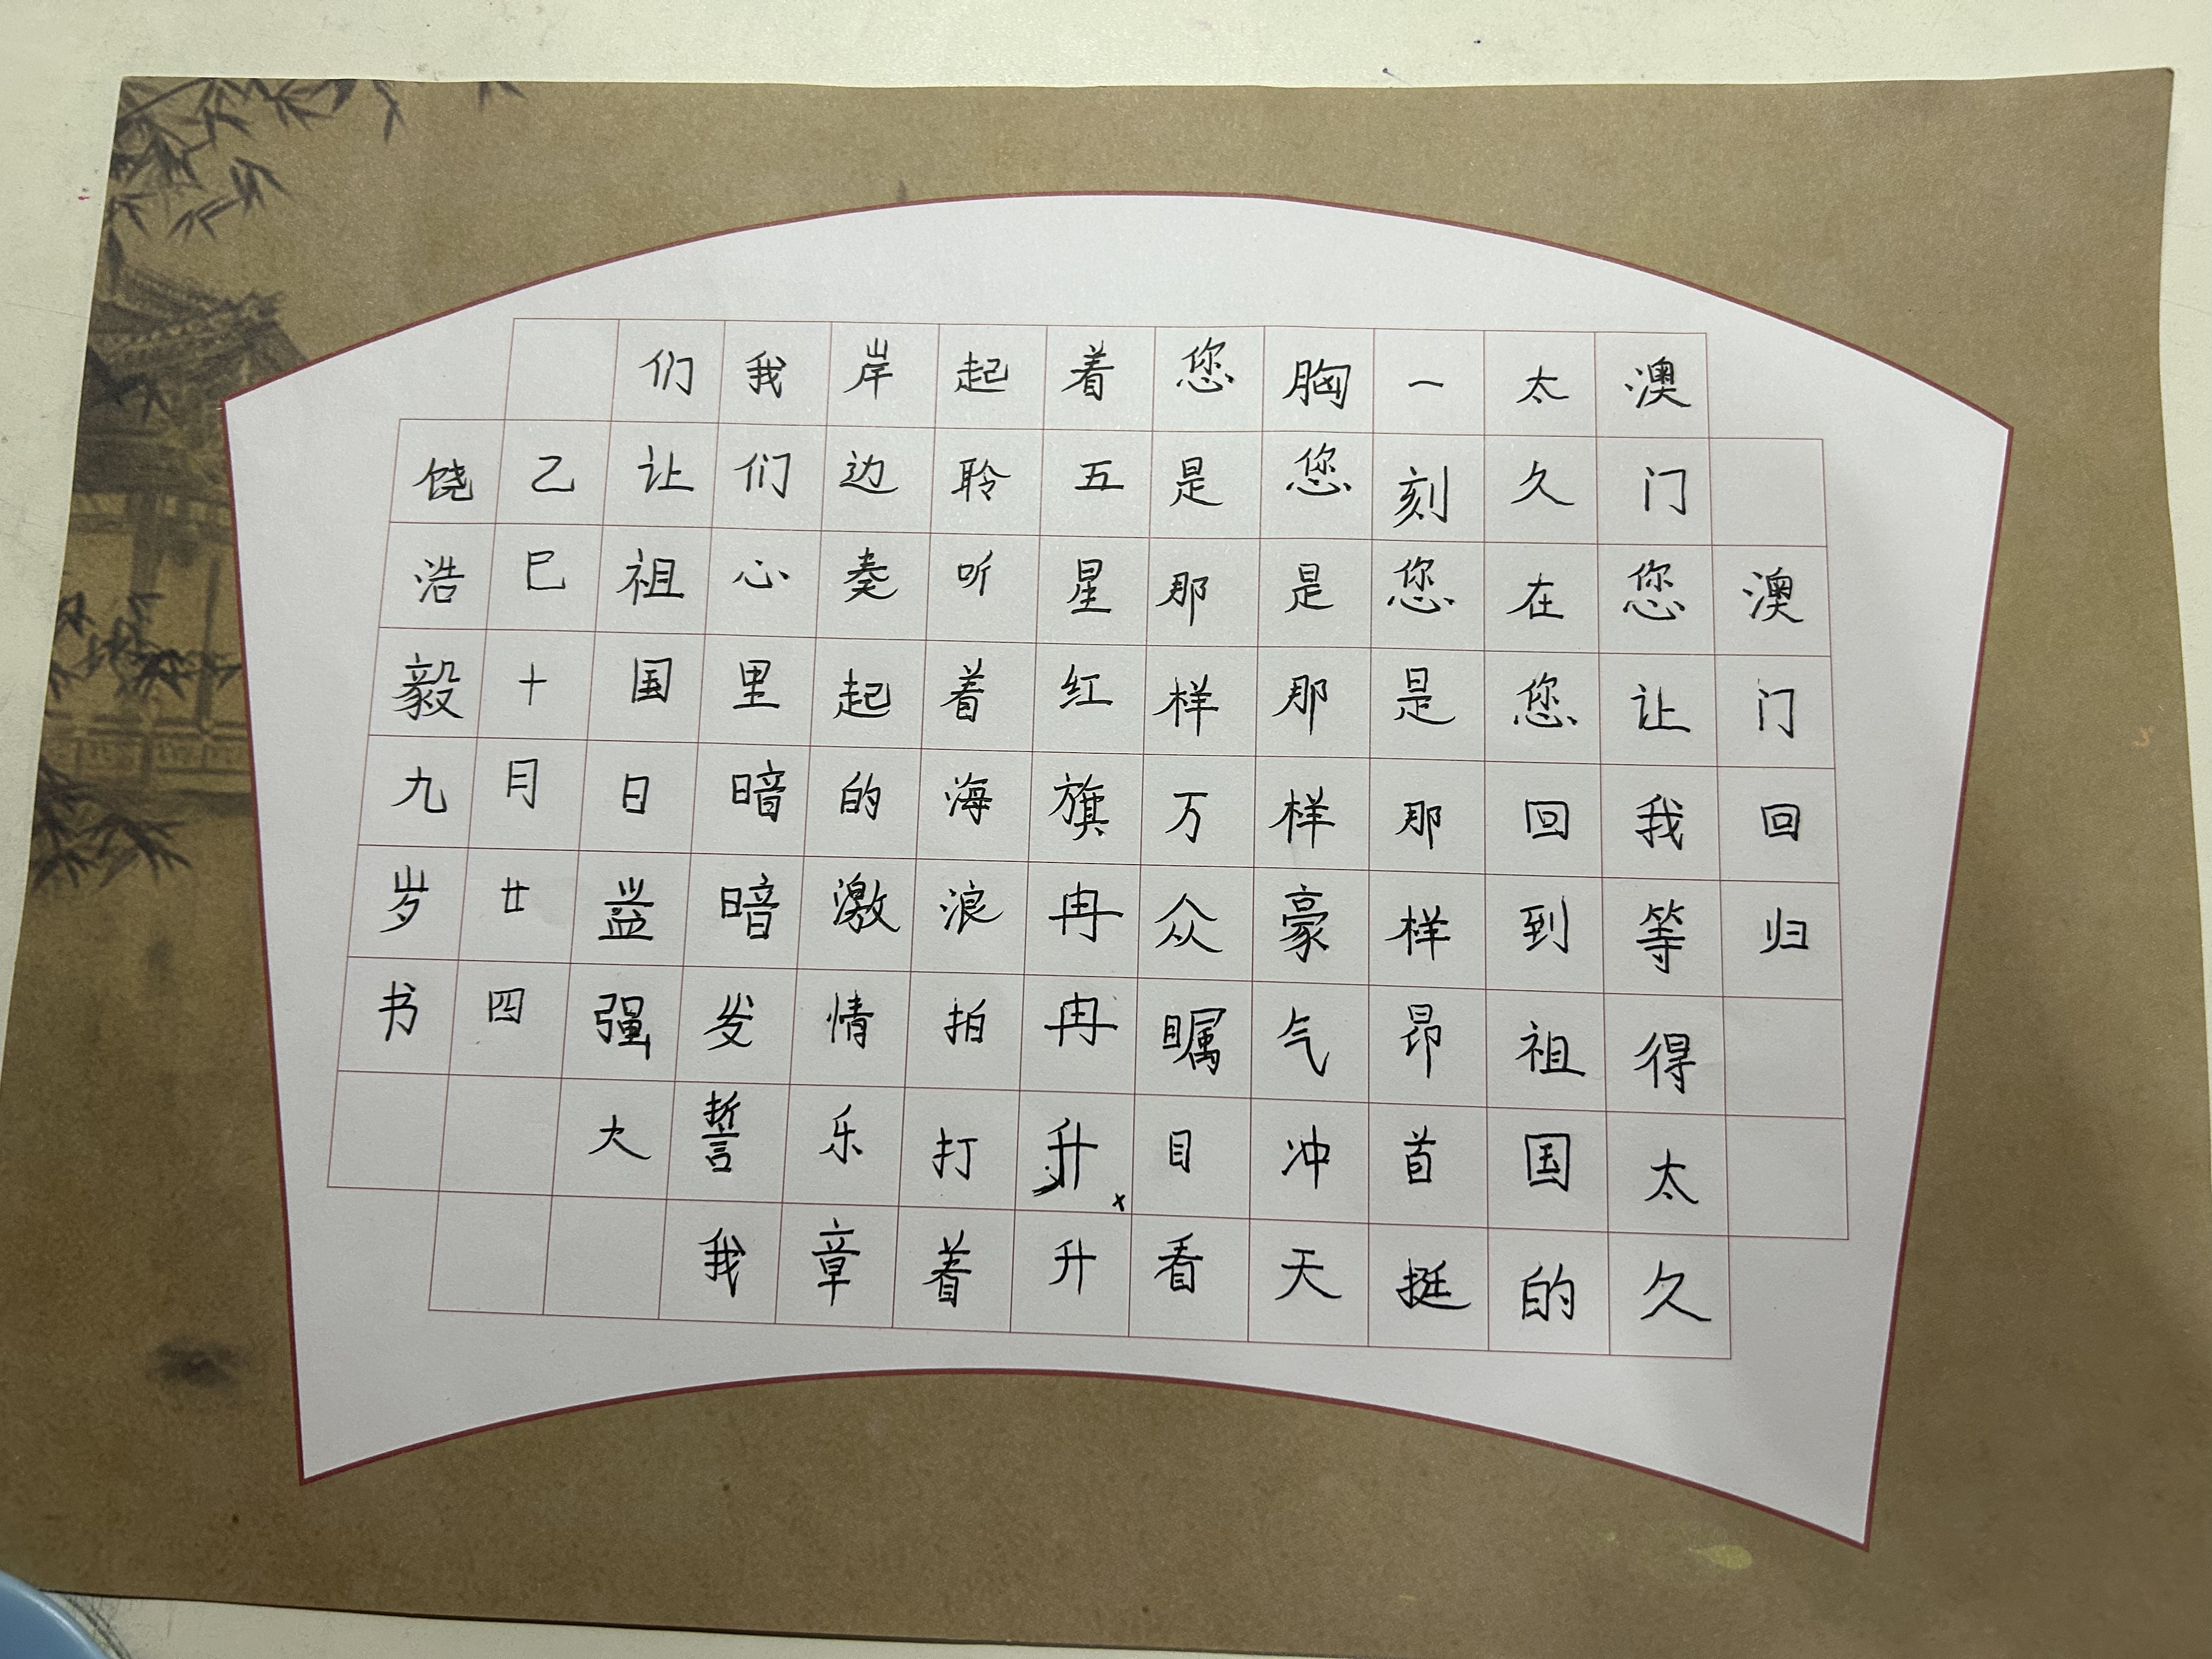 澳门回归
澳门您让我等得太久
太久在您回到祖国的
一刻您是那样昂首挺
胸您是那样豪气冲天
您是那样万众瞩目看
着五星红旗冉冉升升
起聆听着海浪拍打着
岸边奏起的激情乐章
我们心里暗暗发誓我
们让祖国日益强大
乙巳十月廿四
饶浩毅九岁书